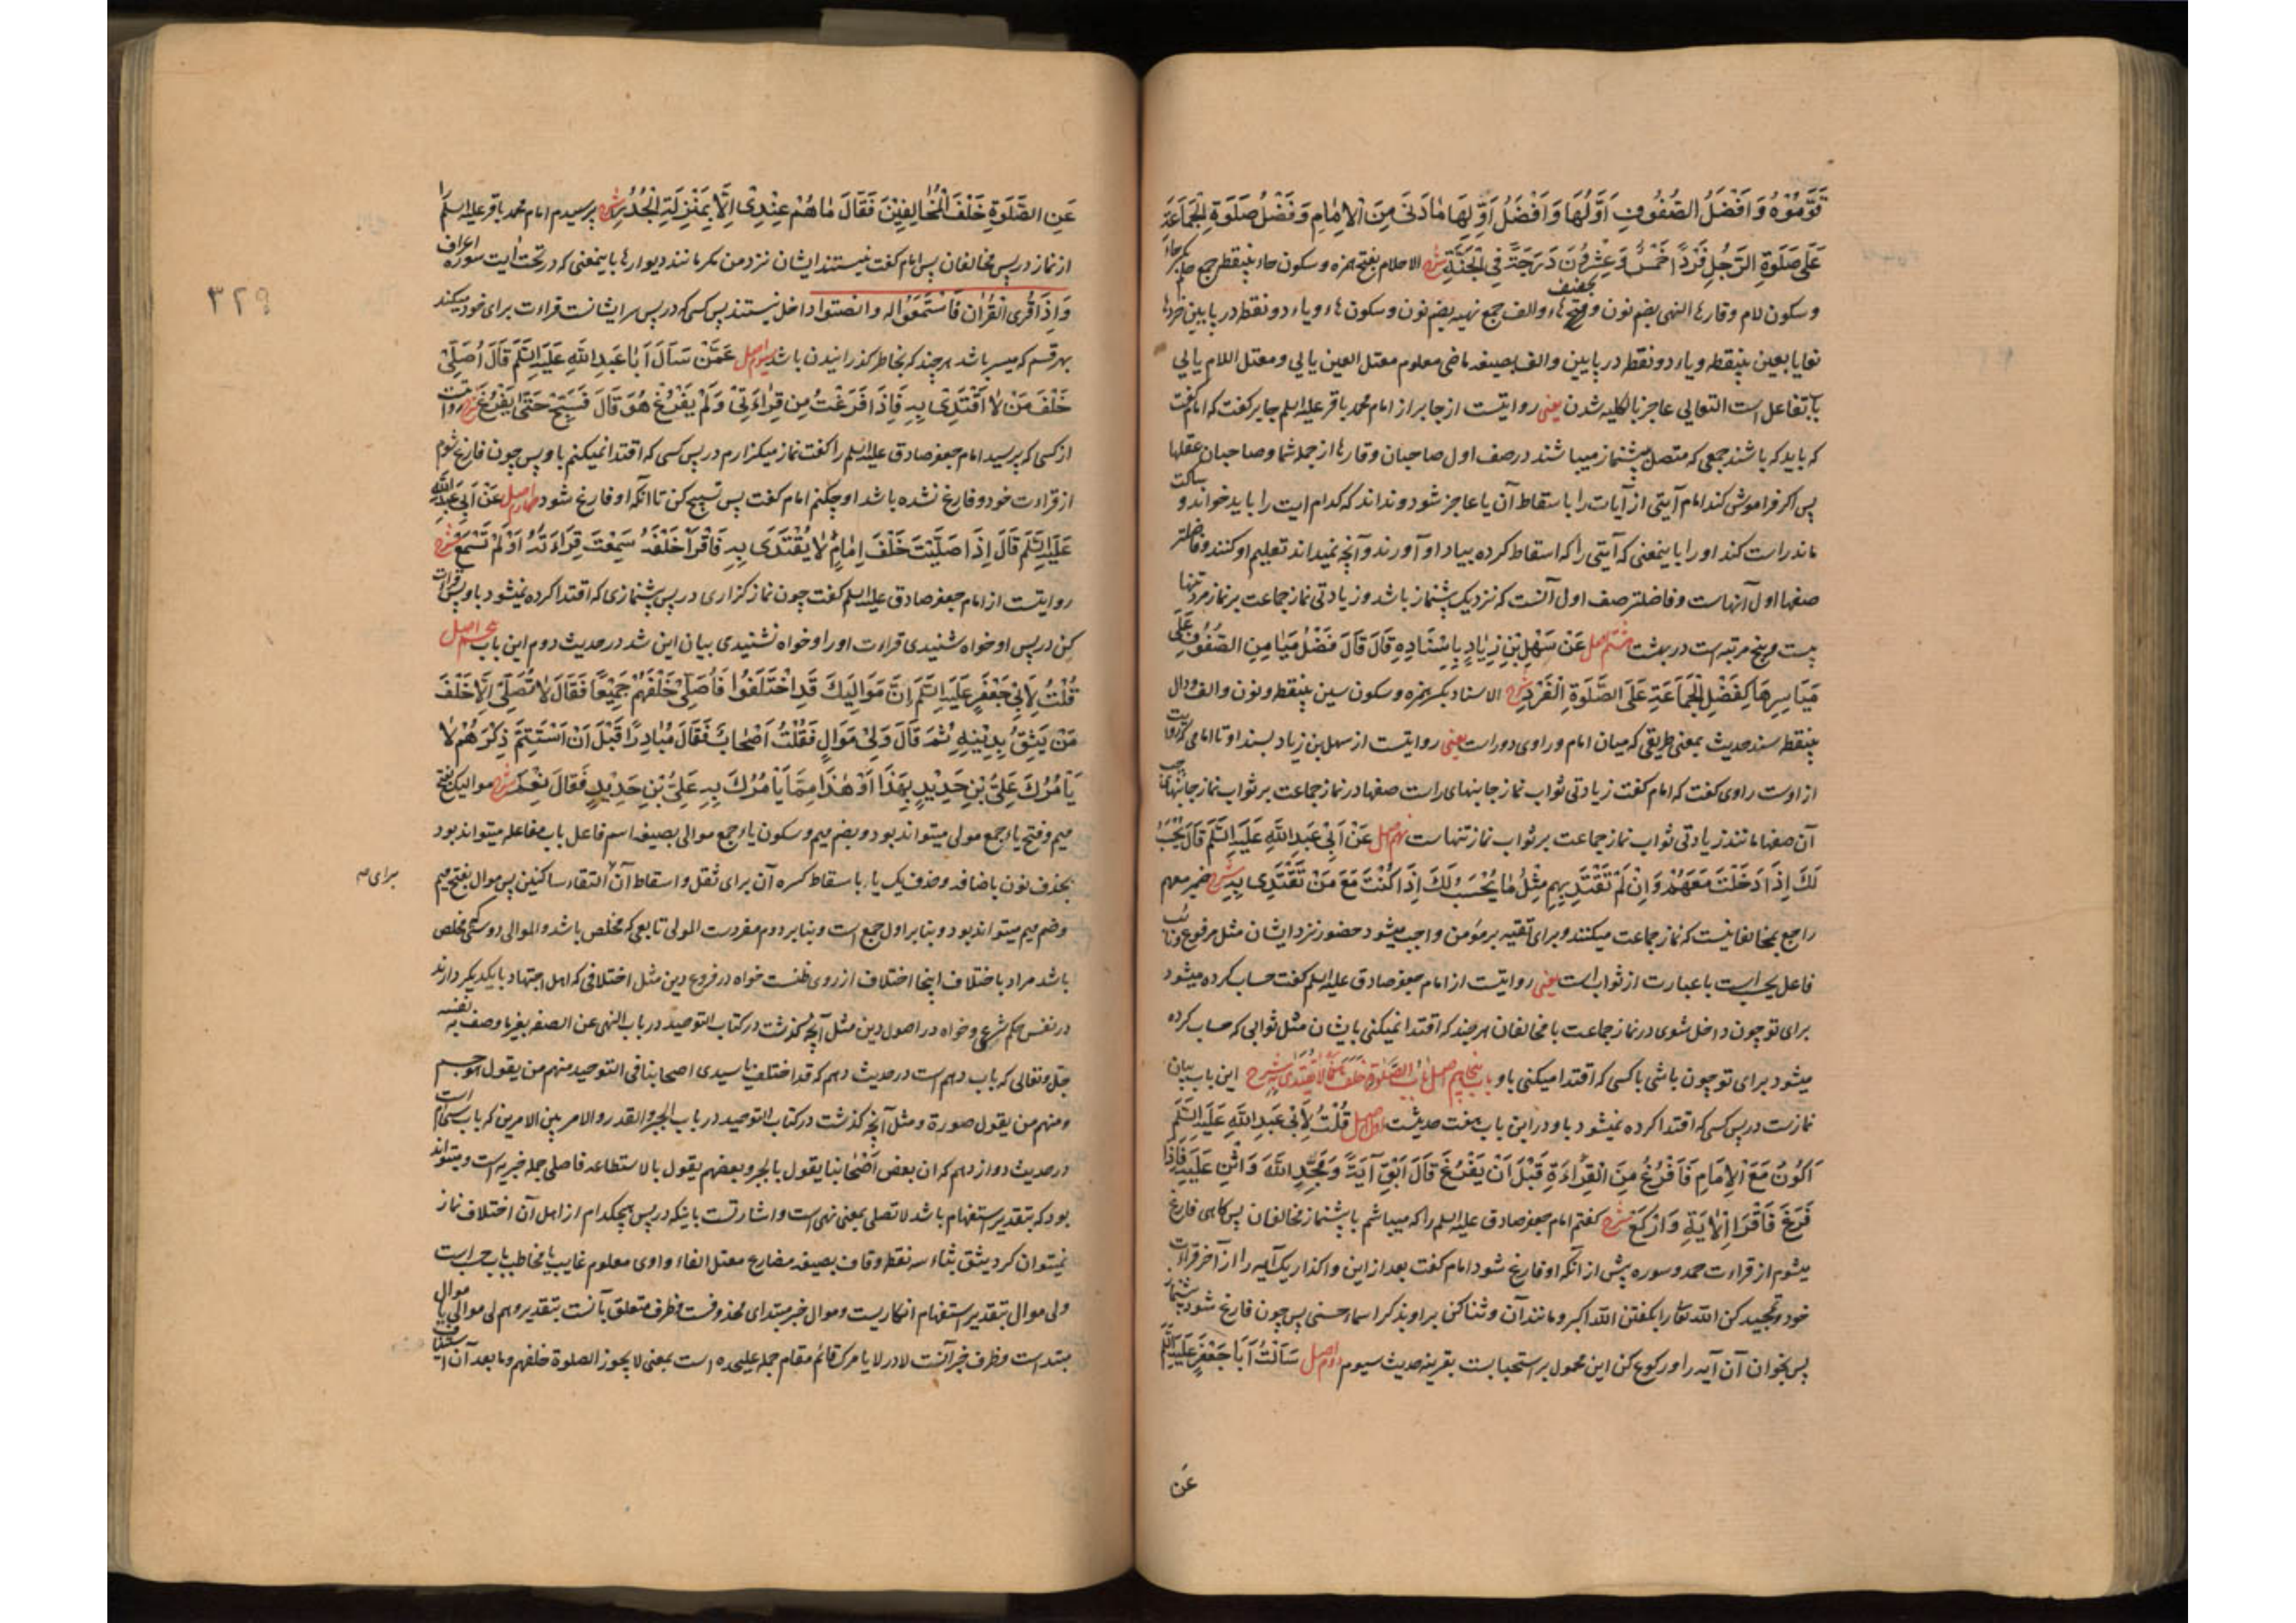 قَوَّمُوْهُ وَاَفْضَلُ الصُّفُوْفِ اَوَّلُهَا وَاَفْضَلُ اَوَّلِهَا مَا دَنَى مِنَ الْاِمَامِ وَفَضْلُ صَلٰوةِ الْجَمَاعَةِ
عَلٰى صَلٰوةِ الرَّجُلِ فَرْدًا خَمْسٌ وَعِشْرُوْنَ دَرَجَةً فِى الْجَنَّةِ شرح الاحلام بفتح همزه وسکون حاء بینقطه جمع حلم بکسر حاء
وسکون لام وقارها النهی بضم نون و فتح هاء والف جمع نهیه بضم نون وسکون هاء ویاء دونقطه در پایین خردها
تعایا بعین بینقطه ویاء دونقطه در پایین والف بصیغه ماضی معلوم معتل العین یایی ومعتل اللام یایی
باب تفاعل است التعایی عاجز بالکلیه شدن یعنی روایتست از جابر از امام محمد باقر علیه السلم جابر کفت که امام کفت
که باید که باشند جمعی که متصل پیشنماز میباشند در صف اول صاحبان وقارها از جمله شما وصاحبان عقلها
پس اکر فراموش کند امام آیتی از آیات را باسقاط آن یا عاجز شود ونداند که کدام ایت را باید خواند و ساکت
ماند راست کنند اورا باینمعنی که آیتی را که اسقاط کرده بیاد او آورند وآنچه نمیداند تعلیم او کنند وفاضلتر
صفها اول آنهاست وفاضلتر صف اول آنست که نزدیک پیشنماز باشد وزیادتی نماز جماعت بر نماز مرد تنها
بیست وپنج مرتبه است در بهشت هشتم اصل عَنْ سَهْلِ بْنِ زِيَادٍ بِاِسْنَادِهِ قَالَ قَالَ فَضْلُ مَيَامِنِ الصُّفُوْفِ عَلٰى
مَيَاسِرِهَا كَفَضْلِ الْجَمَاعَةِ عَلَى الصَّلٰوةِ الْفَرْدِ شرح الاسناد بکسر همزه وسکون سین بینقطه ونون والف ودال
بینقطه سند حدیث بمعنی طریقی که میان امام وراوی دور است یعنی روایتست از سهل بن زیاد بسند او تا امامی که روایت
از اوست راوی کفت که امام کفت زیادتی ثواب نماز جانبهای راست صفها در نماز جماعت بر ثواب نماز جانبهای چپ
آن صفها مانند زیادتی ثواب نماز جماعت بر ثواب نماز تنهاست نهم اصل عَنْ اَبِى عَبْدِ اللّٰهِ عَلَيْهِ السَّلَمُ قَالَ يُحْسَبُ
لَكَ اِذَا دَخَلْتَ مَعَهُمْ وَاِنْ لَمْ تَقْتَدِ بِهِمْ مِثْلُ مَا يُحْسَبُ لَكَ اِذَا كُنْتَ مَعَ مَنْ تَقْتَدِى بِهِ شرح ضمیر معهم
راجع بمخالفانیست که نماز جماعت میکنند وبرای تقیه بر مؤمن واجب میشود حضور نزد ایشان مثل مرفوع ونائب
فاعل یحسب است یا عبارت از ثواب است یعنی روایتست از امام جعفر صادق علیه السلم کفت حساب کرده میشود
برای تو چون داخل شوی در نماز جماعت با مخالفان هر چند که اقتدا نمیکنی بایشان مثل ثوابی که حساب کرده
میشود برای تو چون باشی با کسی که اقتدا میکنی باو باب پنجاهم اصل بَابُ الصَّلٰوةِ خَلْفَ مَنْ لَا يُقْتَدٰى بِهِ شرح این باب بیان
نمازست در پس کسی که اقتدا کرده نمیشود باو و در این باب هفت حدیثست اول اصل قُلْتُ لِاَبِى عَبْدِ اللّٰهِ عَلَيْهِ السَّلَمُ
اَكُوْنُ مَعَ الْاِمَامِ فَاَفْرُغُ مِنَ الْقِرَاءَةِ قَبْلَ اَنْ يَفْرُغَ قَالَ اَبْقِ آيَةً وَمَجِّدِ اللّٰهَ وَاثْنِ عَلَيْهِ فَاِذَا
فَرَغَ فَاقْرَأِ الْاٰيَةَ وَارْكَعْ شرح کفتم امام جعفر صادق علیه السلم را که میباشم با پیشنماز مخالفان پس کاهی فارغ
میشوم از قراءت حمد وسوره پیش از آنکه او فارغ شود امام کفت بعد از این واکذار یک آیه را از آخر قراءت
خود وتمجید کن الله تعا را بکفتن الله اکبر ومانند آن وثنا کن بر او بذکر اسماء حسنی پس چون فارغ شود پیشنماز
پس بخوان آن آیه را ورکوع کن این محمول بر استحبابست بقرینه حدیث سیوم دوم اصل سَاَلْتُ اَبَا جَعْفَرٍ عَلَيْهِ السَّلَمُ
عَنِ
٣٢٩
عَنِ الصَّلٰوةِ خَلْفَ الْمُخَالِفِيْنَ فَقَالَ مَا هُمْ عِنْدِى اِلَّا بِمَنْزِلَةِ الْجُدُرِ شرح پرسیدم امام محمد باقر علیه السلم را
از نماز در پس مخالفان پس امام کفت نیستند ایشان نزد من مکر مانند دیوارها باینمعنی که در تحت ایت سوره اعراف
وَاِذَا قُرِىَ الْقُرْاٰنُ فَاسْتَمِعُوْا له وانصتوا داخل نیستند پس کسی که در پس سر ایشانست قراءت برای خود میکند
بهر قسم که میسر باشد هر چند که بخاطر کذرانیدن باشد سوم اصل عَمَّنْ سَاَلَ اَبَا عَبْدِ اللّٰهِ عَلَيْهِ السَّلَمُ قَالَ اُصَلِّى
خَلْفَ مَنْ لَا اَقْتَدِى بِهِ فَاِذَا فَرَغْتُ مِنْ قِرَاءَتِى وَلَمْ يَفْرُغْ هُوَ قَالَ فَسَبِّحْ حَتّٰى يَفْرُغَ شرح روایتست
از کسی که پرسید امام جعفر صادق علیه السلم را کفت نماز میکزارم در پس کسی که اقتدا نمیکنم باو پس چون فارغ شوم
از قراءت خود و فارغ نشده باشد او چکنم امام کفت پس تسبیح کن تا آنکه او فارغ شود چهارم اصل عَنْ اَبِى عَبْدِ اللّٰهِ
عَلَيْهِ السَّلَمُ قَالَ اِذَا صَلَّيْتَ خَلْفَ اِمَامٍ لَا يُقْتَدٰى بِهِ فَاقْرَأْ خَلْفَهُ سَمِعْتَ قِرَاءَتَهُ اَوْ لَمْ تَسْمَعْ شرح
روایتست از امام جعفر صادق علیه السلم کفت چون نماز کزاری در پس پیشنمازی که اقتدا کرده نمیشود باو پس قراءت
کن در پس او خواه شنیدی قراءت اورا وخواه نشنیدی بیان این شد در حدیث دوم این باب پنجم اصل
قُلْتُ لِاَبِى جَعْفَرٍ عَلَيْهِ السَّلَمُ اِنَّ مَوَالِيَكَ قَدِ اخْتَلَفُوْا فَاُصَلِّى خَلْفَهُمْ جَمِيْعًا فَقَالَ لَا تُصَلِّ اِلَّا خَلْفَ
مَنْ يَثِقُ بِدِيْنِهِ ثُمَّ قَالَ وَلِىْ مَوَالٍ فَقُلْتُ اَصْحَابٌ فَقَالَ مُبَادِرًا قَبْلَ اَنْ اَسْتَتِمَّ ذِكْرَهُمْ لَا
يَاْمُرُكَ عَلِىُّ بْنُ حَدِيْدٍ بِهٰذَا اَوْ هٰذَا مِمَّا يَاْمُرُكَ بِهِ عَلِىُّ بْنُ حَدِيْدٍ فَقَالَ نَعَمْ شرح موالیک بفتح
میم وفتح یاء جمع مولی میتواند بود وبضم میم وسکون یاء جمع موالی بصیغه اسم فاعل باب مفاعله میتواند بود
بحذف نون باضافه وحذف یک یاء باسقاط کسره آن برای ثقل واسقاط آن التقاء ساکنین پس موال بفتح میم
برای
وضم میم میتواند بود وبنابر اول جمع است وبنابر دوم مفردست المولی تابعی که مخلص باشد والموالی دوستی که مخلص
باشد مراد باختلاف اینجا اختلاف از روی ظنست خواه در فروع دین مثل اختلافی که اهل اجتهاد با یکدیکر دارند
در نفس حکم شرعی وخواه در اصول دین مثل آنچه کذشت در کتاب التوحید در باب النهی عن الصفه بغیر ما وصف به نفسه
جل وتعالی که باب دهم است در حدیث دهم که قد اختلف یا سیدی اصحابنا فی التوحید منهم من یقول هو جسم
ومنهم من یقول صورة ومثل آنچه کذشت در کتاب التوحید در باب الجبر والقدر والامر بین الامرین که باب سی‌ام است
در حدیث دوازدهم که ان بعض اَصْحَابنا یقول بالجبر وبعضهم یقول بالاستطاعه فاصلی جمله خبریه است ومیتواند
بود که بتقدیر استفهام باشد لا تصلی بمعنی نهی است واشارتست باینکه در پس هیچکدام از اهل آن اختلاف نماز
نمیتوان کرد یثق بثاء سه نقطه وقاف بصیغه مضارع معتل الفاء واوی معلوم غایب یا مخاطب باب حسب است
ولی موال بتقدیر استفهام انکاریست وموال خبر مبتدای محذوفست وظرف متعلق بآنست بتقدیر وهم لی موالی یا موال
مبتداست وظرف خبر آنست لا در لا یامرک قائم مقام جمله علیحده است بمعنی لا یجوز الصلوة خلفهم وما بعد آن استیناف